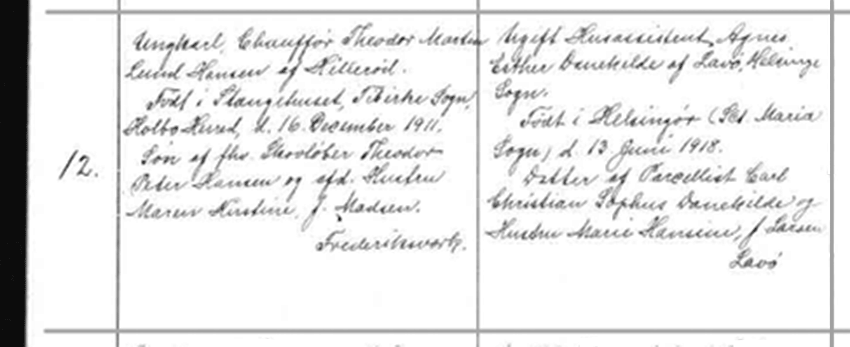 12.
Ungkarl, Chauffør Theodor Marten
Lund Hansen af Hillerød.
Født i Stængehuset, Tibirke Sogn,
Holbo Herred, d. 16. December 1911.
Søn af fhv. Skovløber Theodor
Peter Hansen og afd. Hustru
Maren Kirstine, f. Madsen.
Frederiksværk.
Ugift Husassistent, Agnes
Esther Danekilde af Lavø, Helsinge
Sogn.
Født i Helsingør (Sct. Maria
Sogn) d. 13. Juni 1918.
Datter af Parcellist Carl
Christian Sophus Danekilde og
Hustru Marie Hansine, f Larsen
Lavø